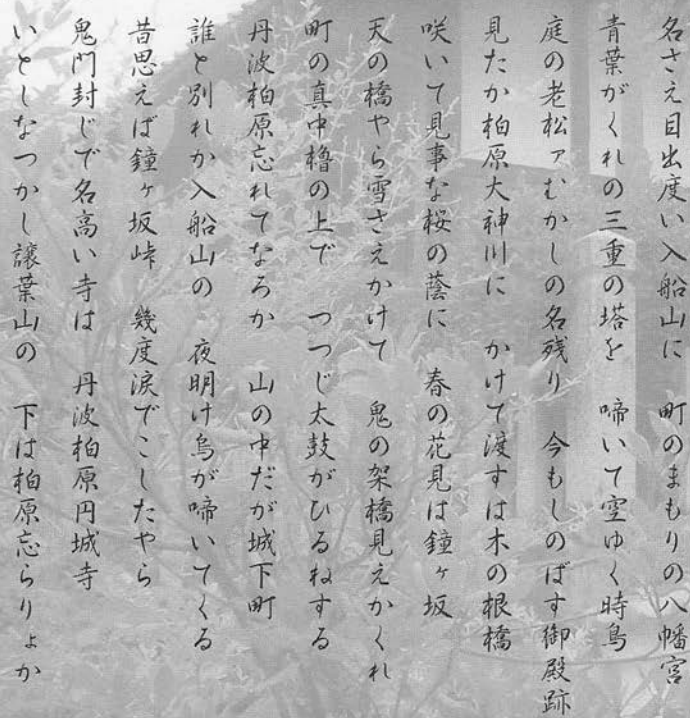 名さえ目出度い入船山に　町のまもりの八幡宮
青葉がくれの三重の塔を　啼いて空ゆく時鳥
庭の老松ァむかしの名残り　今もしのばす御殿跡
見たか柏原大神川に　かけて渡すは木の根橋
咲いて見事な桜の蔭に　春の花見は鐘ヶ坂
天の橋やら雪さえかけて　鬼の架橋見えかくれ
町の真中櫓の上で　つつじ太鼓がひるねする
丹波柏原忘れてなろか　山の中だが城下町
誰と別れか入船山の　夜明け烏が啼いてくる
昔思えば鐘ヶ坂峠　幾度涙でこしたやら
鬼門封じで名高い寺は　丹波柏原円城寺
いとしなつかし譲葉山の　下は柏原忘らりょか